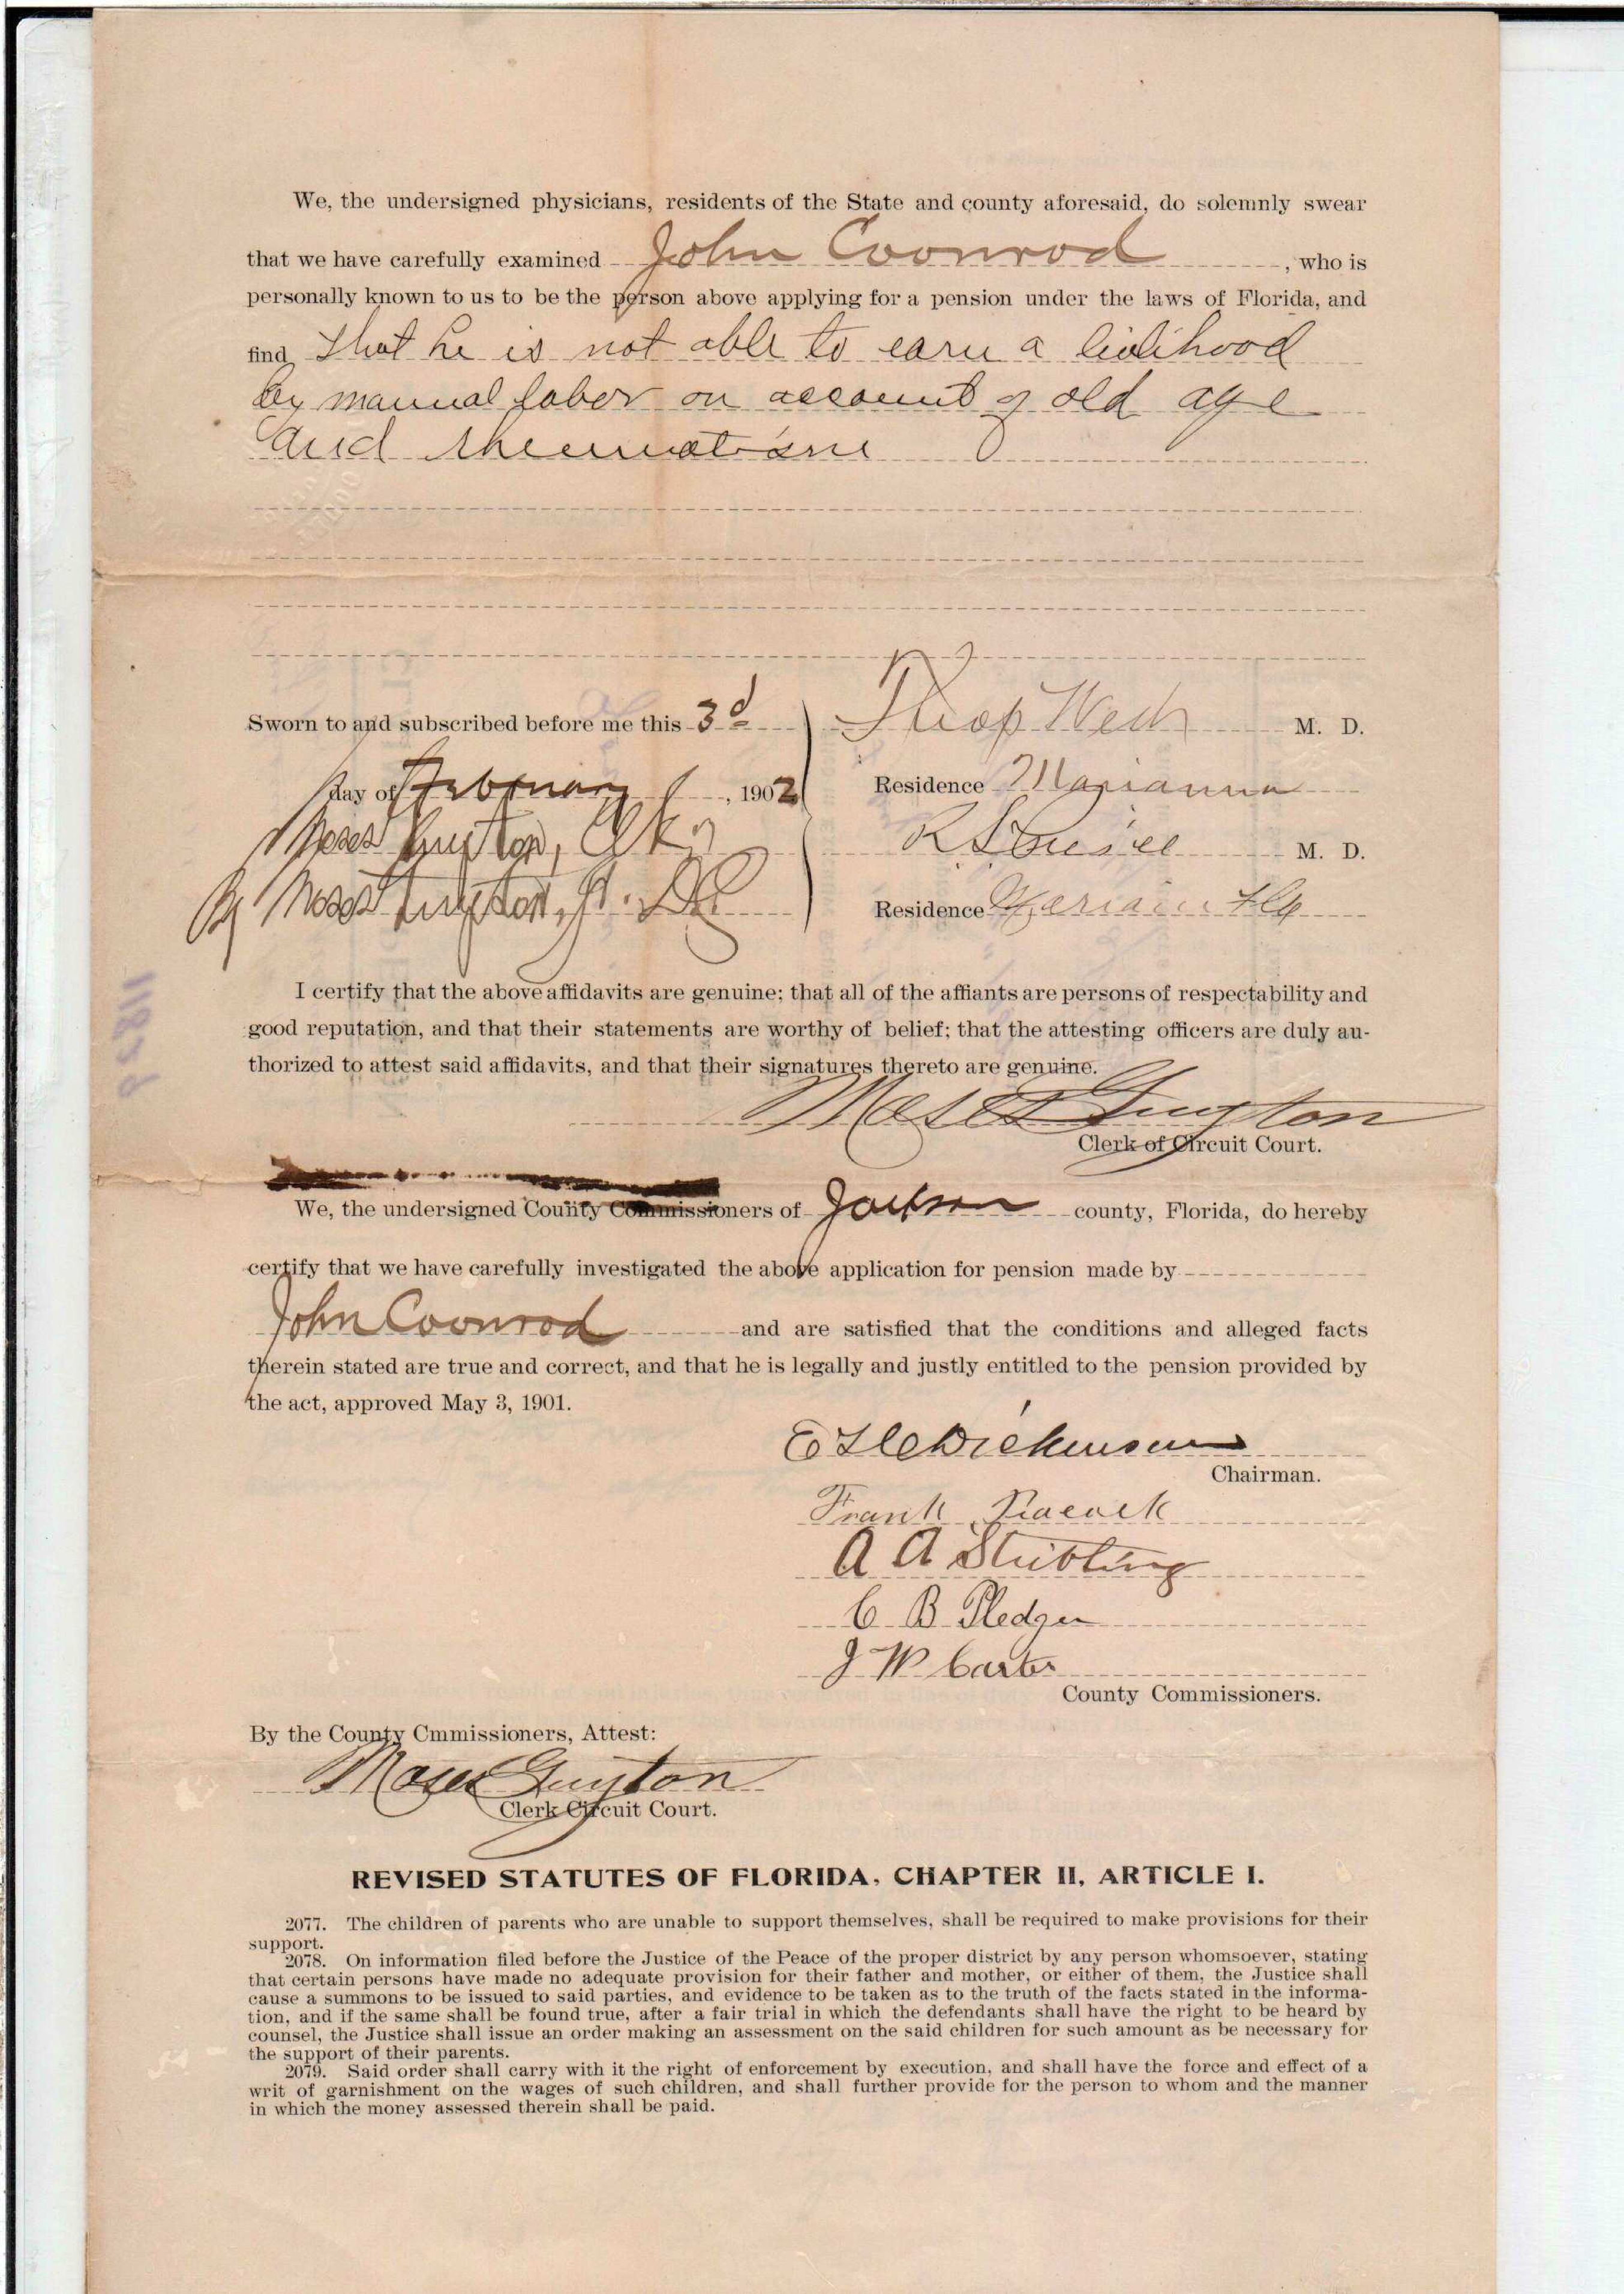 We, the undersigned physicians, residents of the State and county aforesaid, do solemnly swear
that we have carefully examined John Coonrod, who is
personally known to us to be the person above applying for a pension under the laws of Florida, and
find that he is not able to earn a livlihood
by manual labor on account of old age
and rheumatism
Sworn to and subscribed before me this 3d
M. D.
day of February, 1902
Residence Marianna
Moses Guyton, Clk
M. D.
By Moses Guyton, Jr. DC
Residence Fla
I certify that the above affidavits are genuine; that all of the affiants are persons of respectability and
good reputation, and that their statements are worthy of belief; that the attesting officers are duly au-
thorized to attest said affidavits, and that their signatures thereto are genuine.
Moses Guyton
Clerk of Circuit Court.
We, the undersigned County Commissioners of Jackson county, Florida, do hereby
certify that we have carefully investigated the above application for pension made by
John Coonrod and are satisfied that the conditions and alleged facts
therein stated are true and correct, and that he is legally and justly entitled to the pension provided by
the act, approved May 3, 1901.
Dickenson
Chairman.
Frank Peacock
A A Stribling
C B Pledger
J W Carter
County Commissioners.
By the County Cmmissioners, Attest:
Moses Guyton
Clerk Circuit Court.
REVISED STATUTES OF FLORIDA, CHAPTER II, ARTICLE I.
2077. The children of parents who are unable to support themselves, shall be required to make provisions for their
support.
2078. On information filed before the Justice of the Peace of the proper district by any person whomsoever, stating
that certain persons have made no adequate provision for their father and mother, or either of them, the Justice shall
cause a summons to be issued to said parties, and evidence to be taken as to the truth of the facts stated in the informa-
tion, and if the same shall be found true, after a fair trial in which the defendants shall have the right to be heard by
counsel, the Justice shall issue an order making an assessment on the said children for such amount as be necessary for
the support of their parents.
2079. Said order shall carry with it the right of enforcement by execution, and shall have the force and effect of a
writ of garnishment on the wages of such children, and shall further provide for the person to whom and the manner
in which the money assessed therein shall be paid.